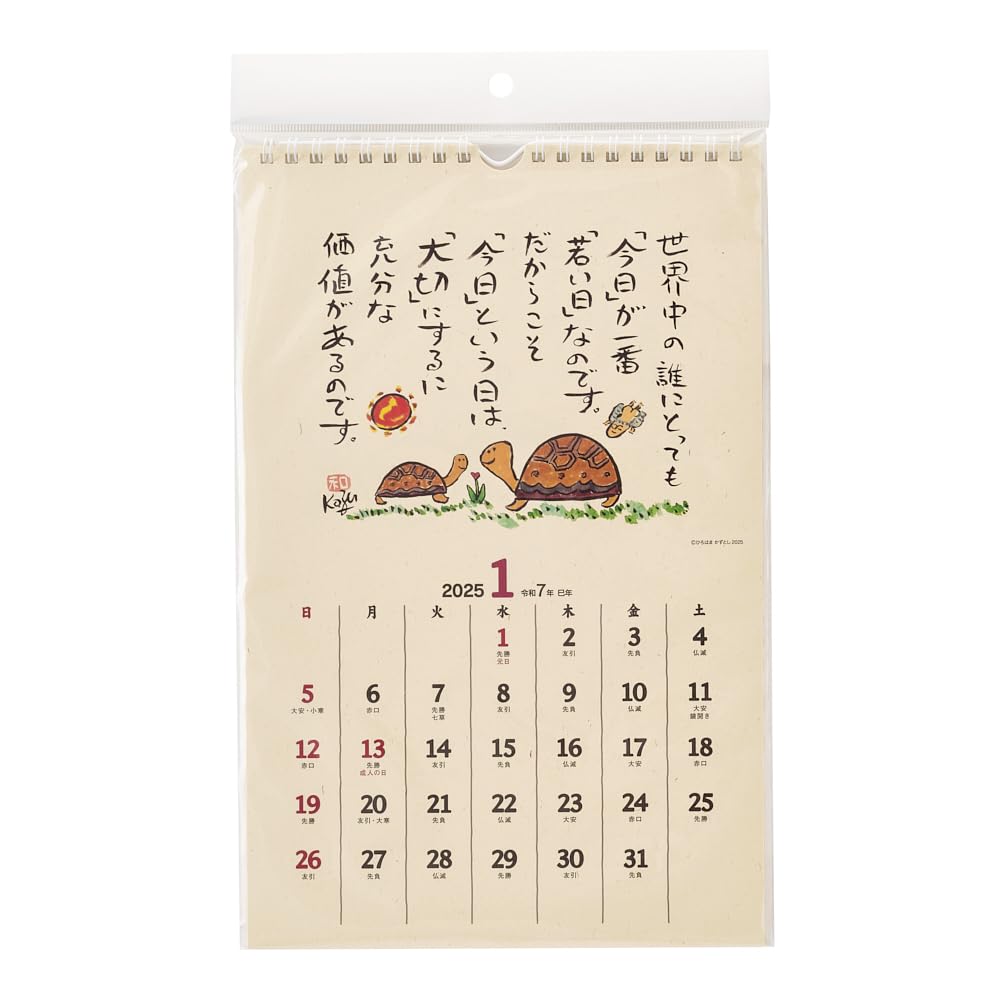 世界中の 誰にとっても
「今日」が一番
「若い日」なのです。
だからこそ
「今日」という日は、
「大切」にするに
充分な
価値があるのです。
和
Kazu
©ひろはま かずとし 2025
2025 1 令和7年 巳年
日 月 火 水 木 金 土
1 2 3 4
先勝 友引 先負 仏滅
元日
5 6 7 8 9 10 11
大安・小寒 赤口 先勝 友引 先負 仏滅 大安
七草 鏡開き
12 13 14 15 16 17 18
赤口 先勝 友引 先負 仏滅 大安 赤口
成人の日
19 20 21 22 23 24 25
先勝 友引・大寒 先負 仏滅 大安 赤口 先勝
26 27 28 29 30 31
友引 先負 仏滅 先勝 友引 先負